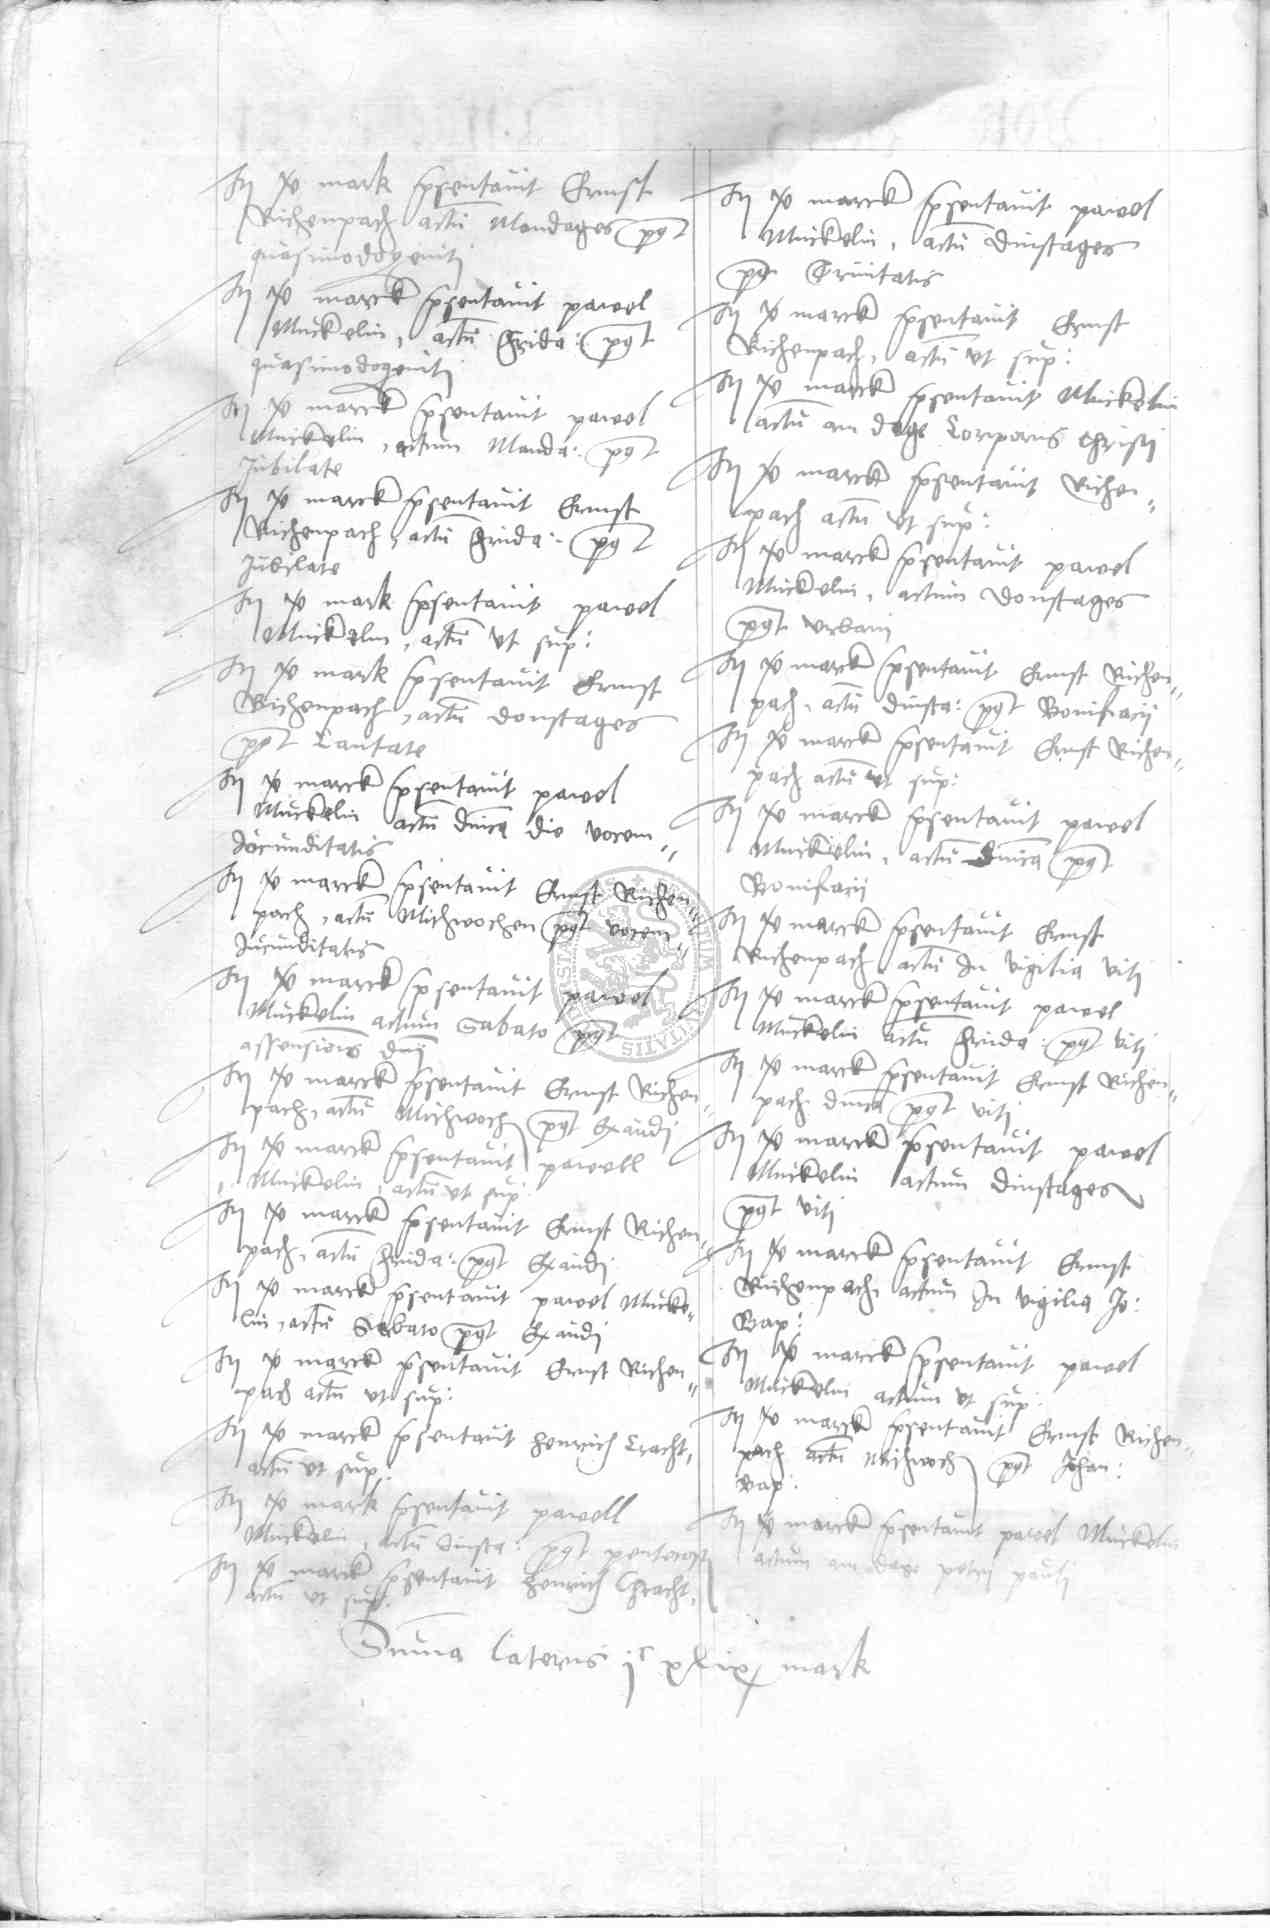 mark presentavit Ernst
Richenpach actum Mandages post
quasimodogeniti
marck presentavit pawel
Muckelin, actum Frida: post
quasimodogeniti
marck presentavit pawel
Muckelin, actum Manda: post
Jubilate
marck presentavit Ernst
Richenpach, actum Frida: post
Jubilate
mark presentavit pawel
Muckelin, actum ut sup:
mark presentavit Ernst
Richenpach, actum donstages
post Cantate
marck presentavit pawel
Muckelin actum dnica die vocem
Jocunditatis
marck presentavit Ernst Richen
pach, actum Mithwochen post vocem
Jucunditatis
marck presentavit pawel
Muckelin actum Sabato post
assensionis dni
marck presentavit Ernst Richen
pach, actum Mithwoch post Exaudi
marck presentavit pawell
Muckelin, actum ut sup
marck presentavit Ernst Richen
pach, actum Frida: post Exaudi
marck presentavit pawel Mucke
lin, actum Sabato post Exaudi
marck presentavit Ernst Richen
pach actum ut sup:
marck presentavit henrich Cracht,
actum ut sup.
mark presentavit pawell
Muckelin, actum dinsta: post pentecost
marck presentavit henrich Chracht,
actum ut sup.
marck presentavit pawel
Muckelin, actum dinstages
post Trinitatis
marck presentavit Ernst
Richenpach, actum ut sup:
marck presentavit Muckelin
actum am dage Corporis Christi
marck presentavit Richen
pach actum ut sup:
marck presentavit pawel
Muckelin, actum donstages
post urbani
marck presentavit Ernst Richen
pach, actum dinsta: post Bonifacij
marck presentavit Ernst Richen
pach actum ut sup:
marck presentavit pawel
Muckelin, actum dnica post
Bonifacij
marck presentavit Ernst
Richenpach actum In vigilia viti
marck presentavit pawel
Muckelin actum Frida: post viti
marck presentavit Ernst Richen
pach dnica post viti
marck presentavit pawel
Muckelin actum dinstages
post viti
marck presentavit Ernst
Richenpach, actum In vigilia Jo:
Bap:
marck presentavit pawel
Muckelin actum ut sup:
marck presentavit Ernst Richen
pach actum Mithwoch post Johan:
Bap:
marck presentavit pawel Muckelin
actum am dage petrj pauli
Summa Lateris jc xlix mark